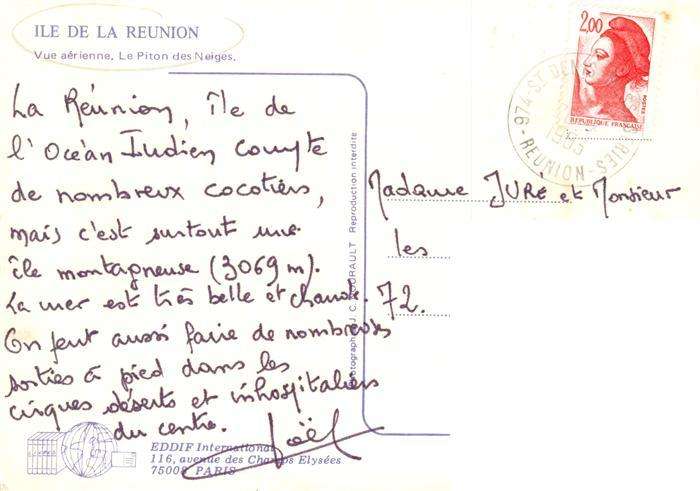 ILE DE LA REUNION
Vue aérienne. Le Piton des Neiges.
La Réunion, île de
l'Océan Indien compte
de nombreux cocotiers,
mais c'est surtout une
île montagneuse (3069 m).
La mer est très belle et chaude.
On peut aussi faire de nombreuses
sorties à pied dans les
cirques déserts et inhospitaliers
du centre. Joël
EDDIF International
116, avenue des Champs Elysées
75008 PARIS
Photographie J. C. Reproduction interdite
2,00
REPUBLIQUE FRANÇAISE
974-ST DEN
RIES-
-REUNION-
Madame JURÉ et Monsieur
les
72.